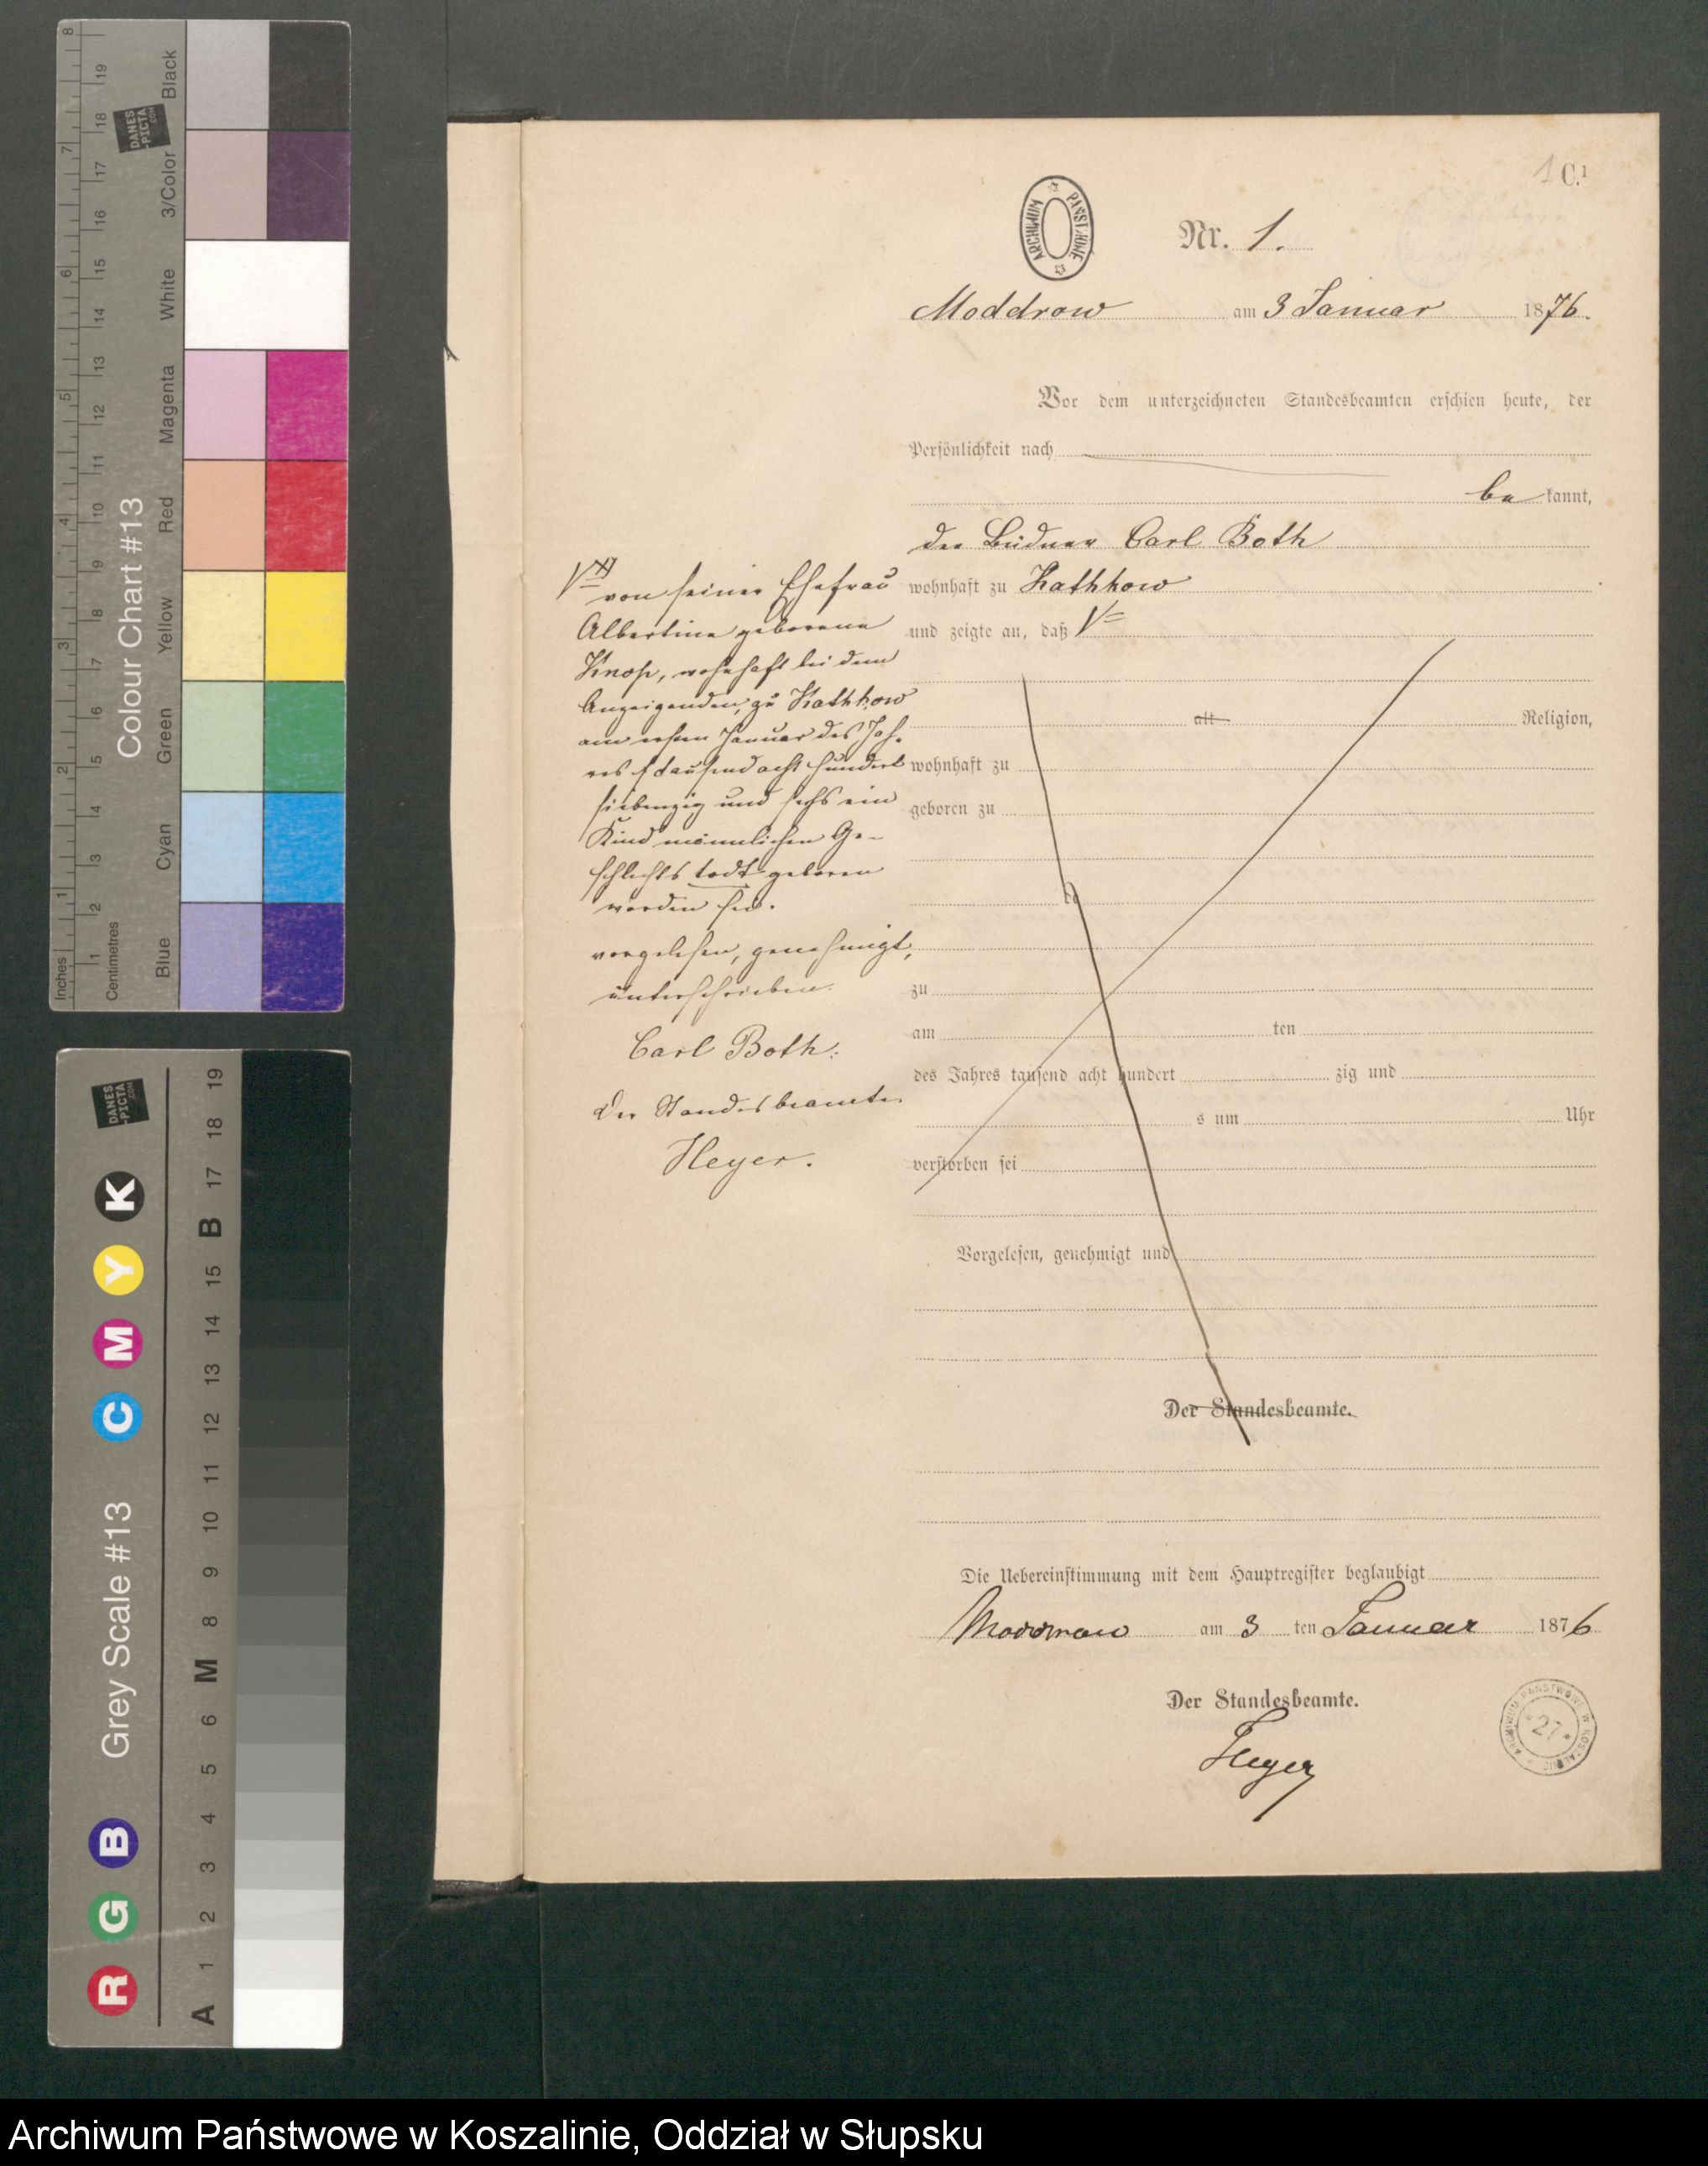 8
7
6
5
4
3
2
1
Inches
19
18
17
16
15
14
13
12
11
10
9
8
7
6
5
4
3
2
1
Centimetres
Colour Chart #13
Black
3/Color
White
Magenta
Red
Yellow
Green
Cyan
Blue
DANES
-PICTA
.COM
DANES
-PICTA
.COM
Grey Scale #13
K
Y
M
C
B
G
R
19
18
17
B
15
14
13
12
11
10
9
8
M
6
5
4
3
2
1
A
1 C.¹
ARCHIWUM PAŃSTWOWE
Nr. 1.
Moddrow am 3 Januar 1876.
Vor dem unterzeichneten Standesbeamten erschien heute, der
Persönlichkeit nach
be kannt,
der Büdner Carl Both
wohnhaft zu Kathkow
und zeigte an, daß
alt Religion,
wohnhaft zu
geboren zu
zu
am ten
des Jahres tausend acht hundert zig und
s um Uhr
verstorben sei
Vorgelesen, genehmigt und
Der Standesbeamte.
von seiner Ehefrau
Albertine geborene
Knop, wohnhaft bei dem
Anzeigenden, zu Kathkow
am ersten Januar des Jah-
res tausend acht hundert
siebenzig und sechs ein
Kind männlichen Ge-
schlechts todt geboren
worden sei.
vorgelesen, genehmigt,
unterschrieben.
Carl Both.
Der Standesbeamte.
Heyer.
Die Uebereinstimmung mit dem Hauptregister beglaubigt
Moddrow am 3 ten Januar 1876
Der Standesbeamte.
Heyer
ARCHIWUM PAŃSTWOWE W KOSZALINIE
* 27 *
Archiwum Państwowe w Koszalinie, Oddział w Słupsku